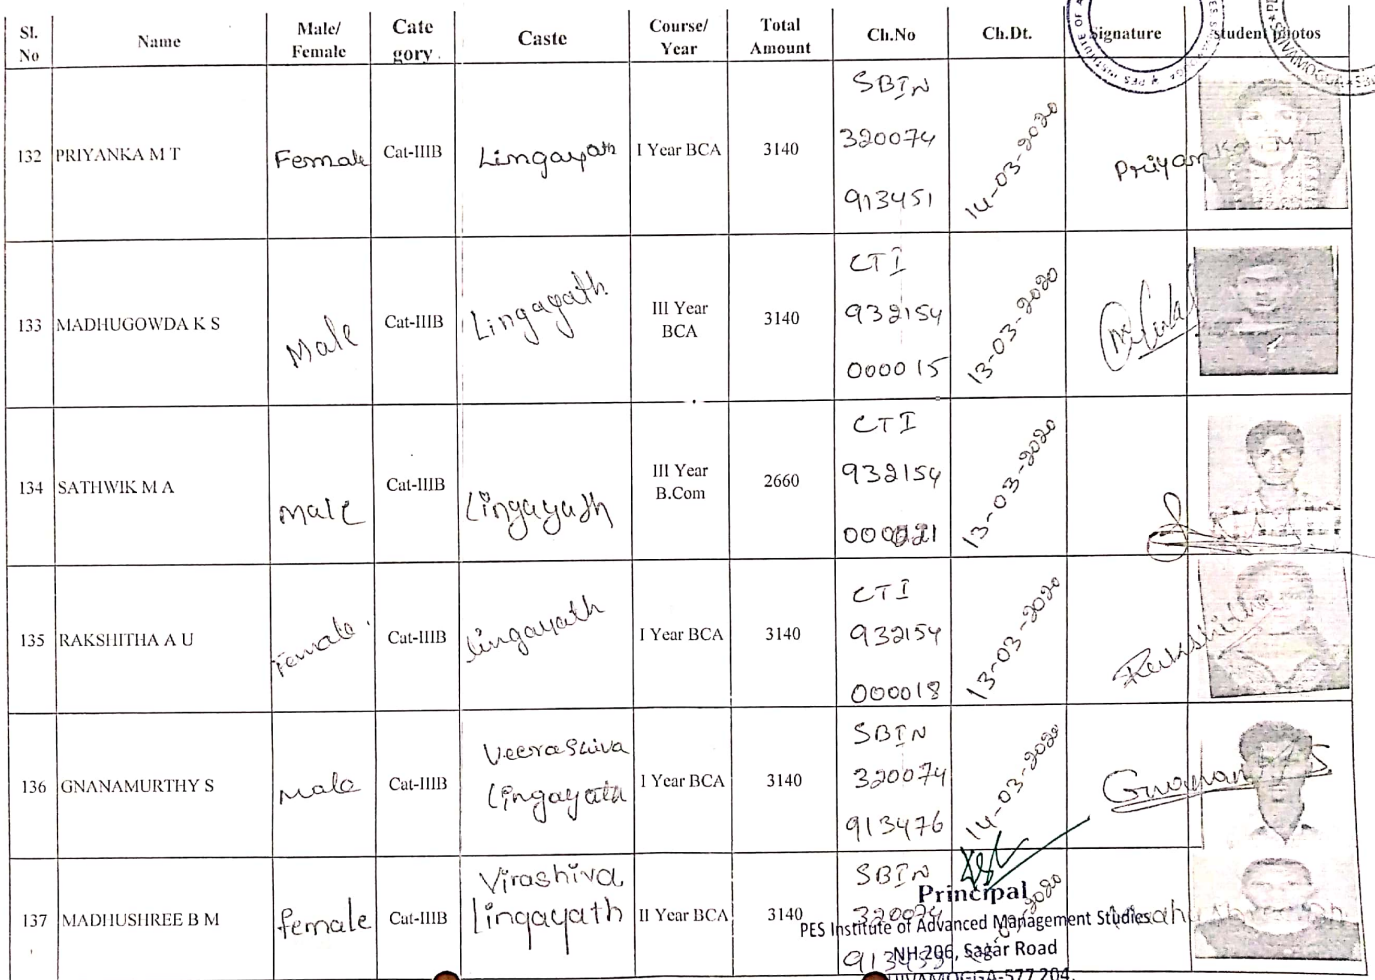 Sl. No Name Male/ Female Cate gory. Caste Course/ Year Total Amount Ch.No Ch.Dt. Signature student photos
132 PRIYANKA M T Female Cat-IIIB Lingayath I Year BCA 3140 SBIN 320074 913451 14-03-2020
133 MADHUGOWDA K S Male Cat-IIIB Lingayath III Year BCA 3140 CTI 932154 000015 13-03-2020
134 SATHWIK M A Male Cat-IIIB Lingayath III Year B.Com 2660 CTI 932154 13-03-2020
135 RAKSHITHA A U Female Cat-IIIB Lingayath I Year BCA 3140 CTI 932154 000018 13-03-2020 Rakshitha
136 GNANAMURTHY S Male Cat-IIIB Veerashiva Lingayath I Year BCA 3140 SBIN 320074 913476 14-03-2020
137 MADHUSHREE B M female Cat-IIIB Virashiva Lingayath II Year BCA 3140 SBIN 320074
Principal
PES Institute of Advanced Management Studies
NH-206, Sagar Road
SHIVAMOGGA-577 204.